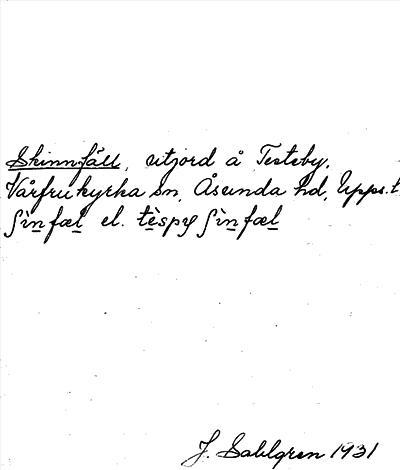 Skinnfäll, utjord å Testeby,
Vårfrukyrka sn, Åsunda hd, Upps.l
ʃìn̲fæl̲ el. ʃìn̲fæl̲
J. Sahlgren 1931